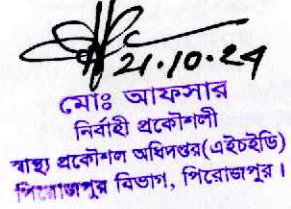 21.10.24
মোঃ আফসার
নির্বাহী প্রকৌশলী
স্বাস্থ্য প্রকৌশল অধিদপ্তর(এইচইডি)
পিরোজপুর বিভাগ, পিরোজপুর।